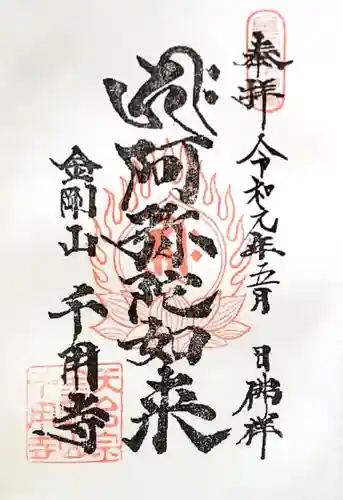 奉拝 令和元年五月 日佛祥
阿弥陀如来
金剛山 千用寺
天台宗
千用寺